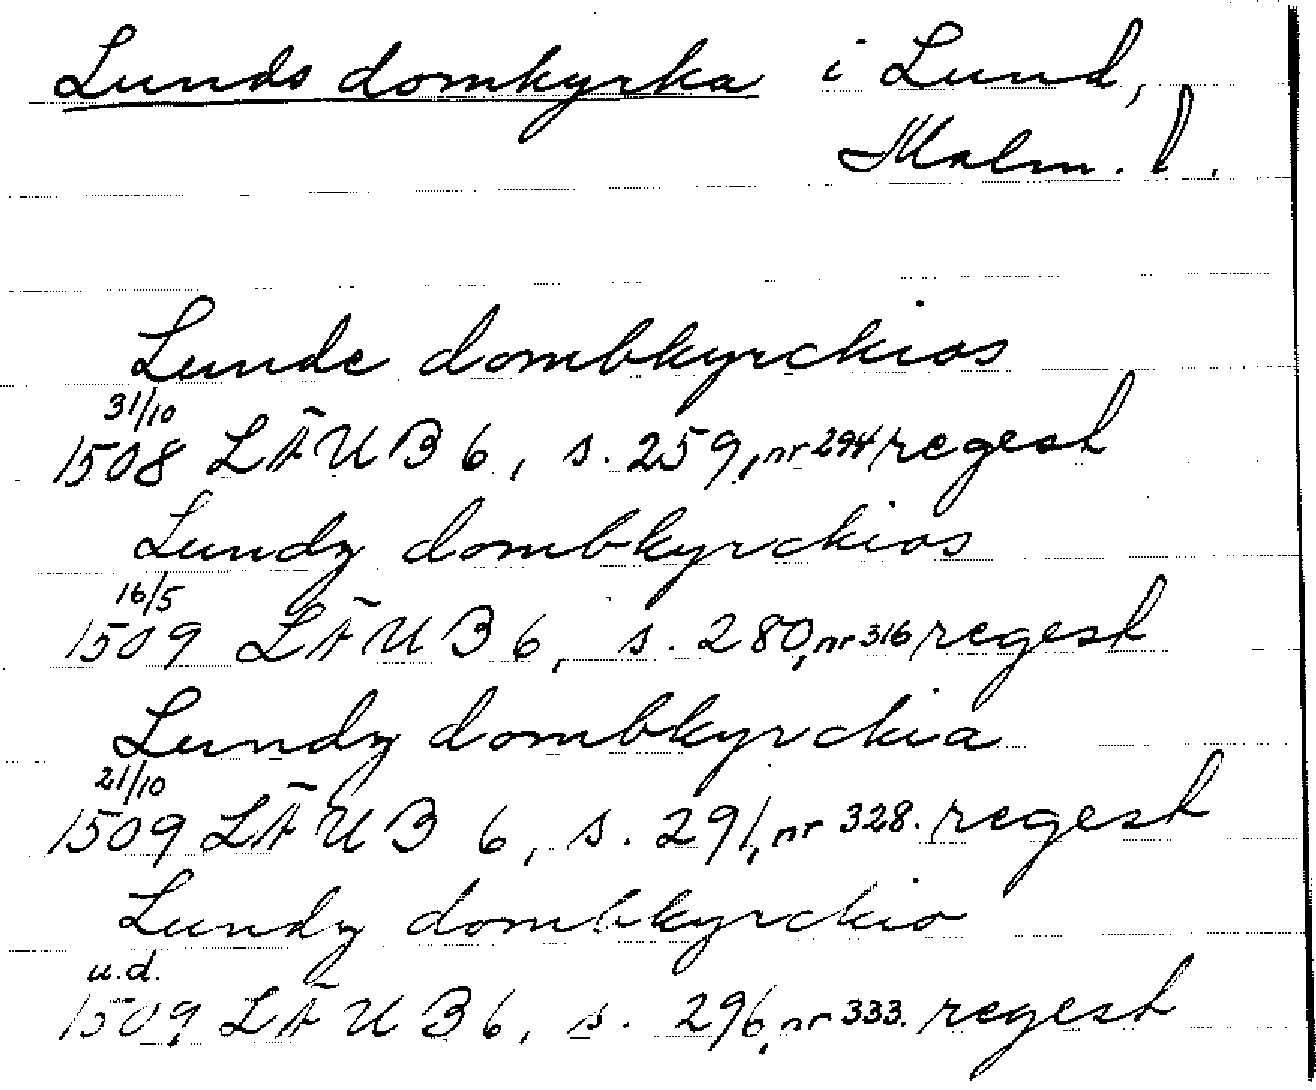 Lunds domkyrka i Lund,
Malm. l.
Lunde dombkyrckios
31/10
1508 LÄUB 6, s. 259, nr 294 regest
Lundz dombkyrckios
16/5
1509 LÄUB 6, s. 280, nr 316 regest
Lundz dombkyrckia
21/10
1509 LÄUB 6, s. 291, nr 328. regest
Lundz dombkyrckio
u.d.
1509 LÄUB 6, s. 296, nr 333. regest